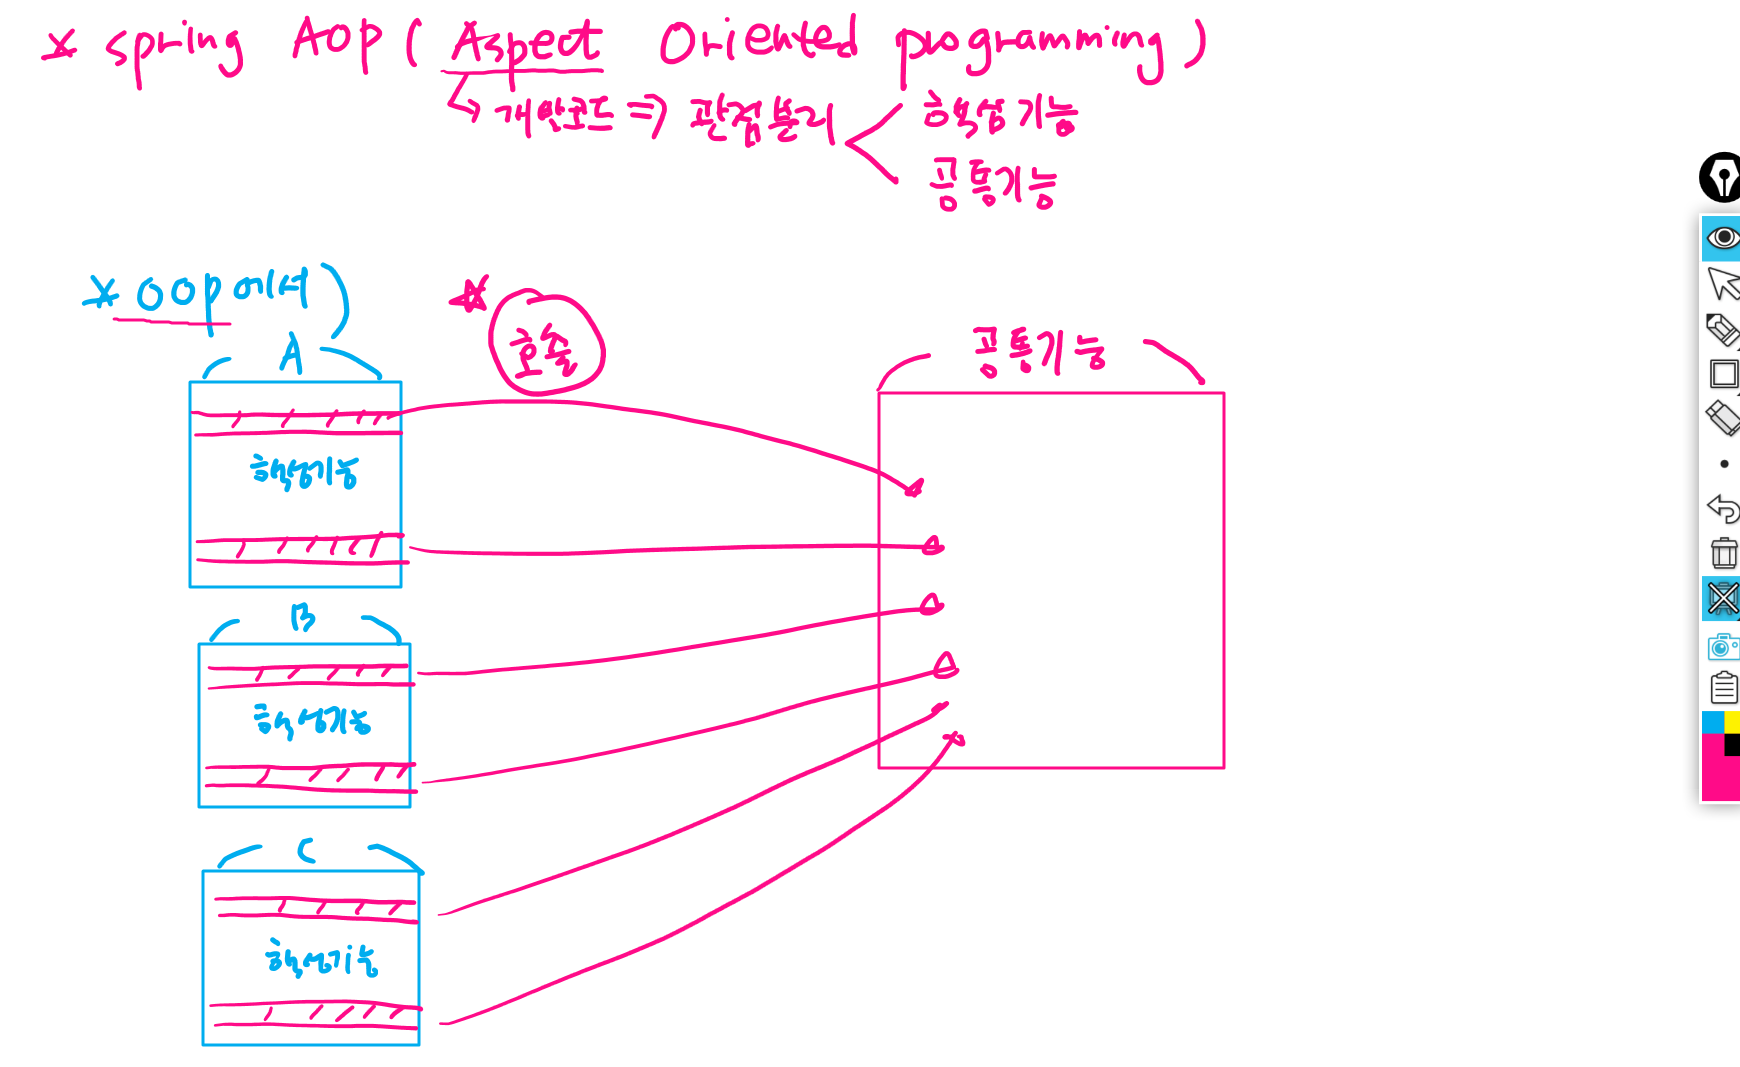 * spring AOP ( Aspect Oriented programming )
↳ 개발코드 ⇒ 관점분리 < 핵심기능
공통기능
* OOP에서)
☆ 호출
A
공통기능
핵심기능
B
핵심기능
C
핵심기능